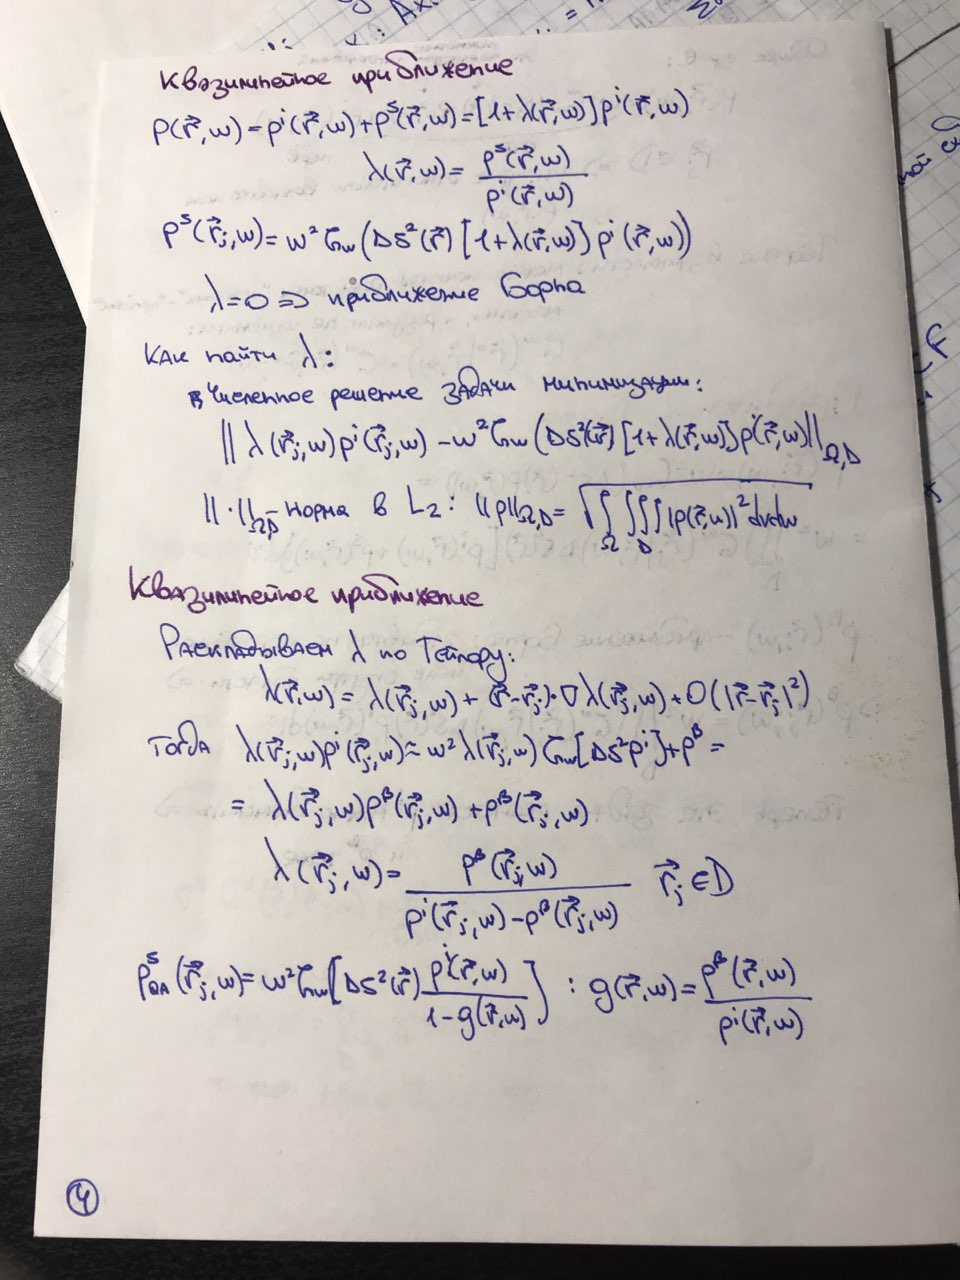 Квазилинейное приближение
p(r⃗,w)=pⁱ(r⃗,w)+pˢ(r⃗,w)=[1+λ(r⃗,w)]pⁱ(r⃗,w)
λ(r⃗,w)= pˢ(r⃗,w) / pⁱ(r⃗,w)
pˢ(r⃗ⱼ,w)=w²G_w(Δs²(r⃗)[1+λ(r⃗,w)]pⁱ(r⃗,w))
λ=0 => приближение Борна
Как найти λ:
Численное решение задачи минимизации:
||λ(r⃗ⱼ,w)pⁱ(r⃗ⱼ,w)-w²G_w(Δs²(r⃗)[1+λ(r⃗,w)]pⁱ(r⃗,w)||_Ω,D
||·||_Ω,D - норма в L₂: ||p||_Ω,D= √∫_Ω ∭_D |p(r⃗,w)|²dvdw
Квазилинейное приближение
Раскладываем λ по Тейлору:
λ(r⃗,w)= λ(r⃗ⱼ,w)+(r⃗-r⃗ⱼ)·∇λ(r⃗ⱼ,w)+O(|r⃗-r⃗ⱼ|²)
Тогда λ(r⃗ⱼ,w)pⁱ(r⃗ⱼ,w)≈w²λ(r⃗ⱼ,w)G_w[Δs²pⁱ]+pᴮ=
= λ(r⃗ⱼ,w)pᴮ(r⃗ⱼ,w)+pᴮ(r⃗ⱼ,w)
λ(r⃗ⱼ,w)= pᴮ(r⃗ⱼ,w) / pⁱ(r⃗ⱼ,w)-pᴮ(r⃗ⱼ,w) r⃗ⱼ∈D
pˢ_QA(r⃗ⱼ,w)=w²G_w[Δs²(r⃗) pⁱ(r⃗,w) / 1-g(r⃗,w)] : g(r⃗,w)= pᴮ(r⃗,w) / pⁱ(r⃗,w)
4